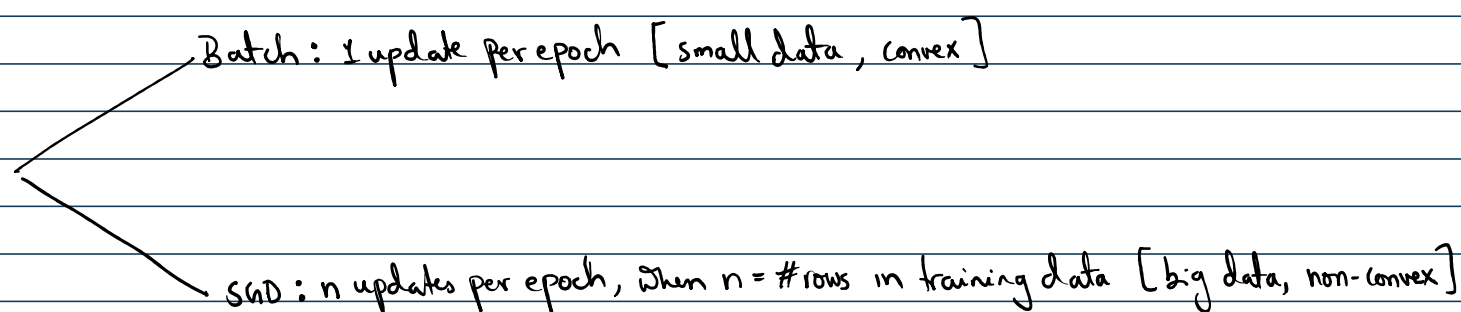 Batch : 1 update per epoch [small data, convex]
SGD : n updates per epoch, when n = #rows in training data [big data, non-convex]